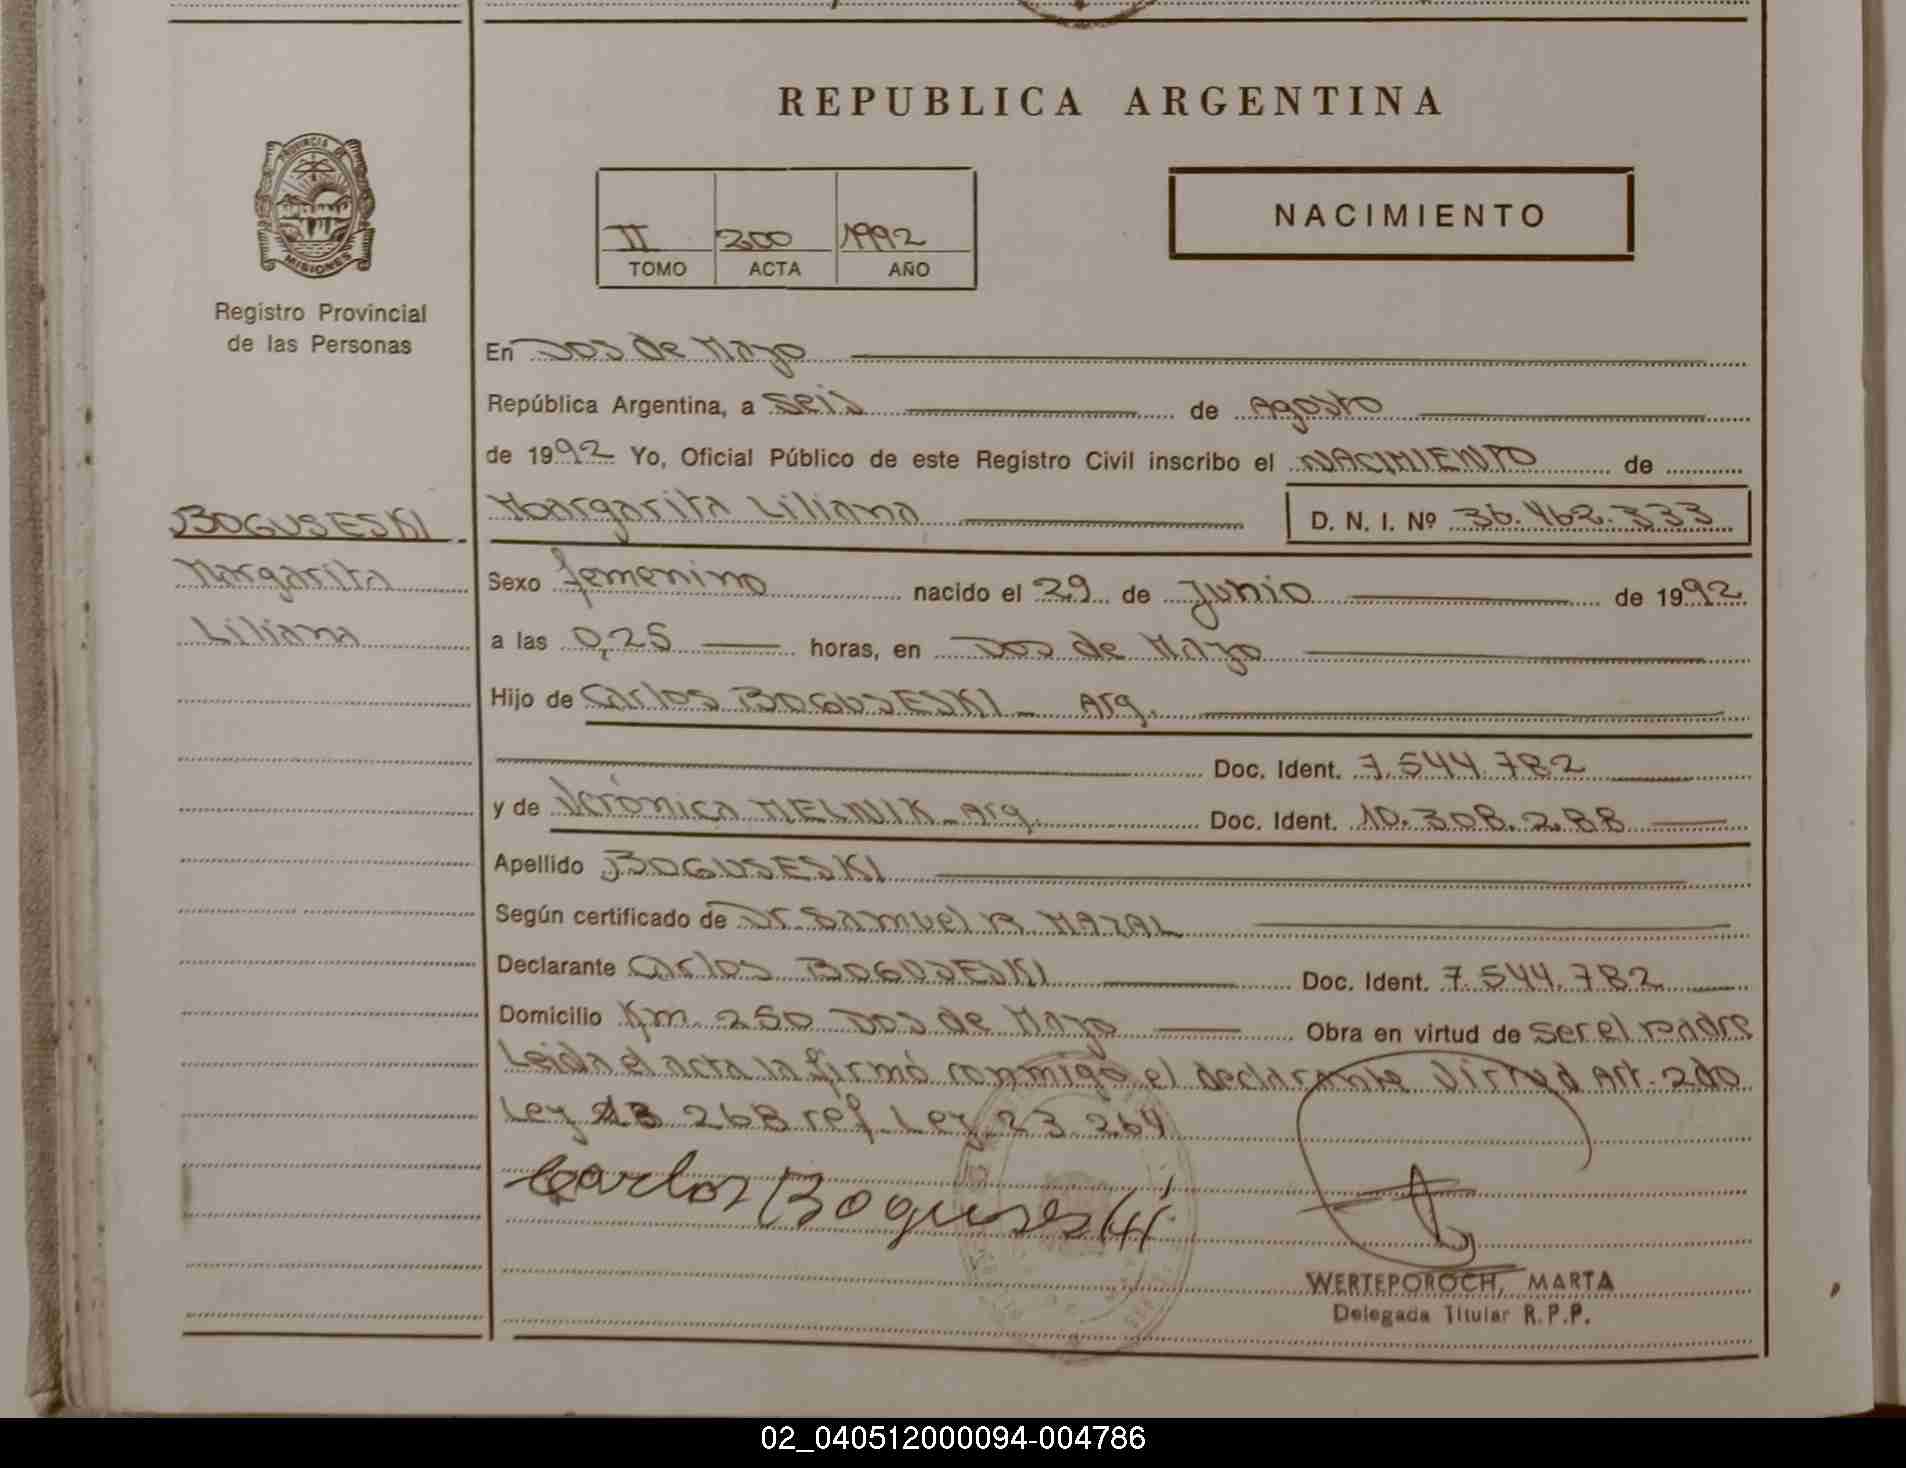 REPUBLICA ARGENTINA
PROVINCIA DE
MISIONES
Registro Provincial
de las Personas
II 200 1992
TOMO ACTA AÑO
NACIMIENTO
En Dos de Mayo
República Argentina, a seis de Agosto
de 1992 Yo, Oficial Público de este Registro Civil inscribo el NACIMIENTO de
Margarita Liliana D. N. I. Nº 36.462.333
BOGUSESKI
Margarita
Liliana
Sexo femenino nacido el 29 de Junio de 1992
a las 0,25 horas, en Dos de Mayo
Hijo de Carlos BOGUSESKI - Arg.
Doc. Ident. 7.544.782
y de Verónica MELNIK - Arg. Doc. Ident. 10.308.288
Apellido BOGUSESKI
Según certificado de Dr. Samuel R. MAZAL
Declarante Carlos BOGUSESKI Doc. Ident. 7.544.782
Domicilio Km. 250 Dos de Mayo Obra en virtud de ser el padre
Leida el acta la firmó conmigo el declarante Virtud Art. 240
Ley 268 ref. Ley 23.264
Carlos Boguseski
WERTEPOROCH, MARTA
Delegada Titular R.P.P.
02_040512000094-004786